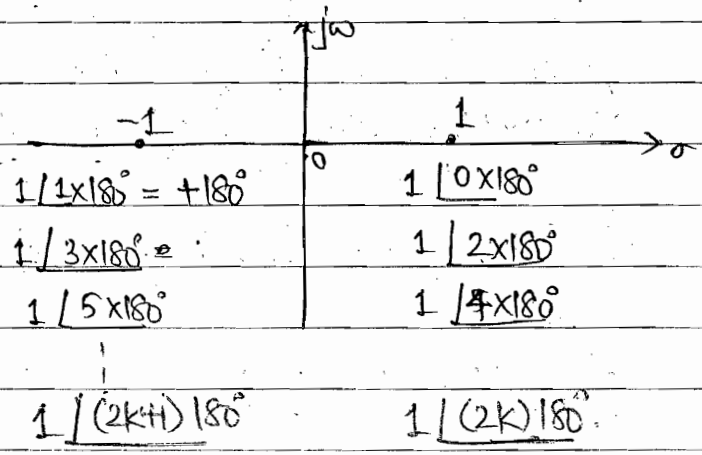 jω
-1 1
0 σ
1∠1×180° = +180° 1∠0×180°
1∠3×180° = 1∠2×180°
1∠5×180° 1∠4×180°
1∠(2k+1)180° 1∠(2k)180°